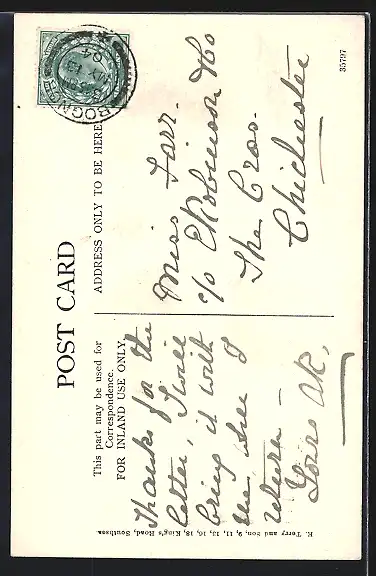 POST CARD
This part may be used for
Correspondence.
FOR INLAND USE ONLY.
ADDRESS ONLY TO BE HERE
Thanks for the
letter, I will
bring it with
me when I
return —
Miss Farr.
c/o E Robinson & Co
The Cros.
Chichester
BOGN
MY 13
04
35797
R. Terry and Son, 9, 11, 13, 15, 16, 18, King's Road, Southsea.